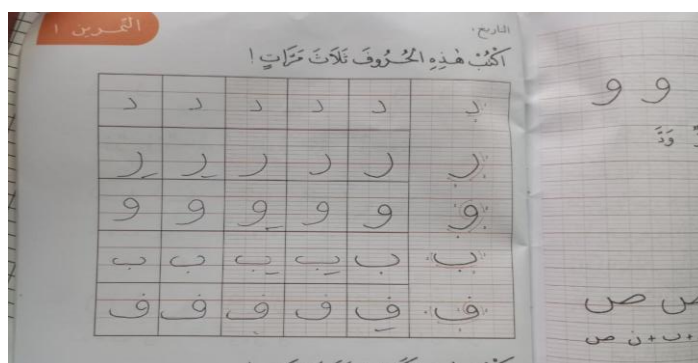 التمرين ١
التاريخ:
اكْتُبْ هٰذِهِ الحُرُوفَ ثَلَاثَ مَرَّاتٍ !
د د د د د د
ر ر ر ر ر ر
و و و و و و
ب ب ب ب ب ب
ف ف ف ف ف ف
و و
وَدَّ
ص ص